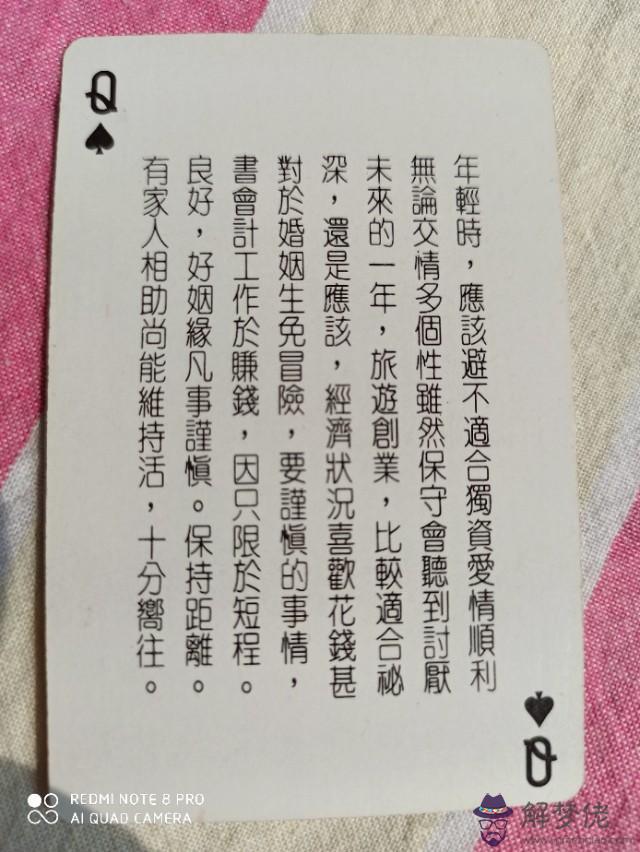 Q
年輕時，應該避不適合獨資愛情順利
無論交情多個性雖然保守會聽到討厭
未來的一年，旅遊創業，比較適合祕
深，還是應該，經濟狀況喜歡花錢甚
對於婚姻生免冒險，要謹慎的事情，
書會計工作於賺錢，因只限於短程。
良好，好姻緣凡事謹慎。保持距離。
有家人相助尚能維持活，十分嚮往。
Q
REDMI NOTE 8 PRO
AI QUAD CAMERA
解梦佬